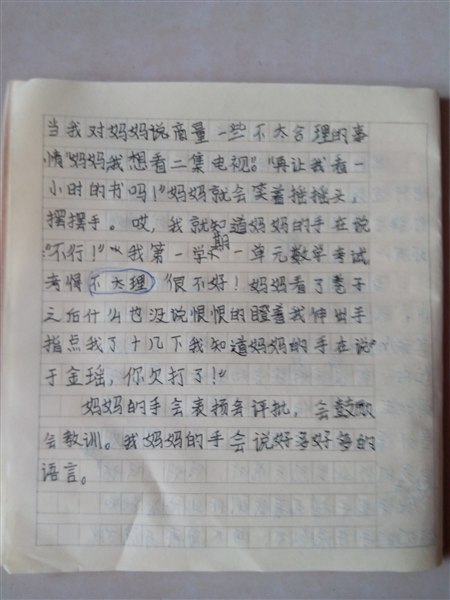 当我对妈妈说商量一些不大合理的事
情"妈妈我想看二集电视。""再让我看一
小时的书吗!"妈妈就会笑着摇摇头,
摆摆手。哎,我就知道妈妈的手在说
"不行!""我第一学期一单元数学考试
考得不大理"很不好!妈妈看了卷子
之后什么也没说恨恨的瞪着我伸出手
指点我了十几下我知道妈妈的手在说"
于金瑶,你欠打了!"
妈妈的手会表扬会评批,会鼓励
会教训。我妈妈的手会说好多好多的
语言。